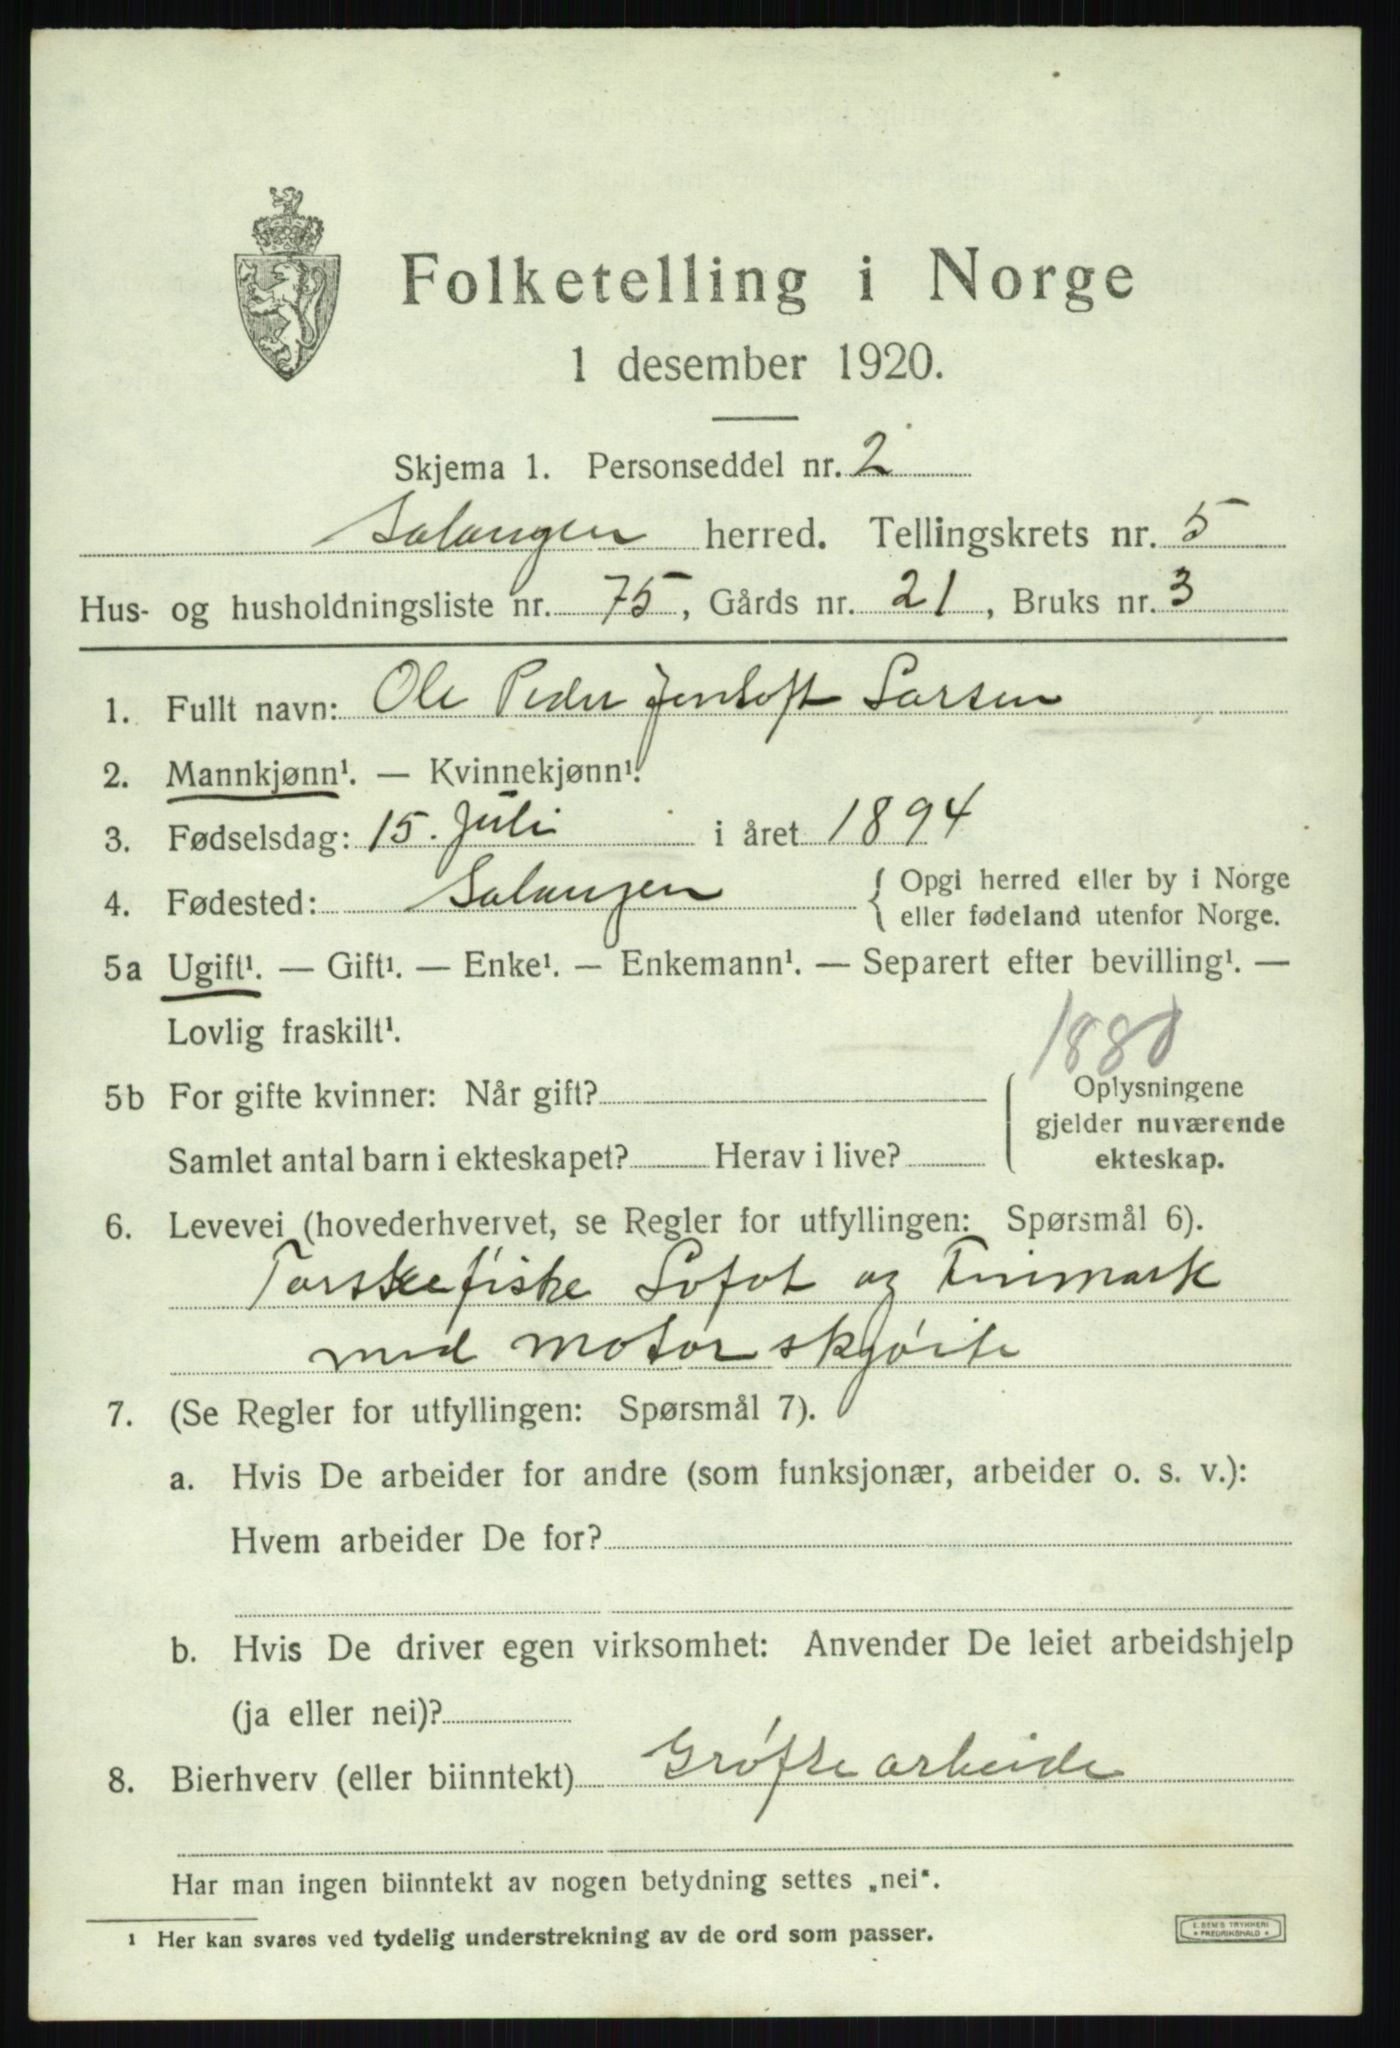 Folketelling i Norge
1 desember 1920.
Skjema 1. Personseddel nr. 2
Salangen herred. Tellingskrets nr. 5
Hus- og husholdningsliste nr. 75, Gårds nr. 21, Bruks nr. 3
1. Fullt navn: Ole Peder Jentoft Larsen
2. Mannkjønn¹. — Kvinnekjønn¹.
3. Fødselsdag: 15. Juli i året 1894
4. Fødested: Salangen { Opgi herred eller by i Norge
eller fødeland utenfor Norge.
5a Ugift¹. — Gift¹. — Enke¹. — Enkemann¹. — Separert efter bevilling¹. —
Lovlig fraskilt¹.
1880
5b For gifte kvinner: Når gift? ( Oplysningene
gjelder nuværende
Samlet antal barn i ekteskapet? Herav i live? ekteskap.
6. Levevei (hovederhvervet, se Regler for utfyllingen: Spørsmål 6).
Torskefiske Lofot og Finmark
med motorskjøite
7. (Se Regler for utfyllingen: Spørsmål 7).
a. Hvis De arbeider for andre (som funksjonær, arbeider o. s. v.):
Hvem arbeider De for?
b. Hvis De driver egen virksomhet: Anvender De leiet arbeidshjelp
(ja eller nei)?
8. Bierhverv (eller biinntekt) Grøftearbeide
Har man ingen biinntekt av nogen betydning settes „nei".
1 Her kan svares ved tydelig understrekning av de ord som passer.
E. SEM'S TRYKKERI
* FREDRIKSHALD *